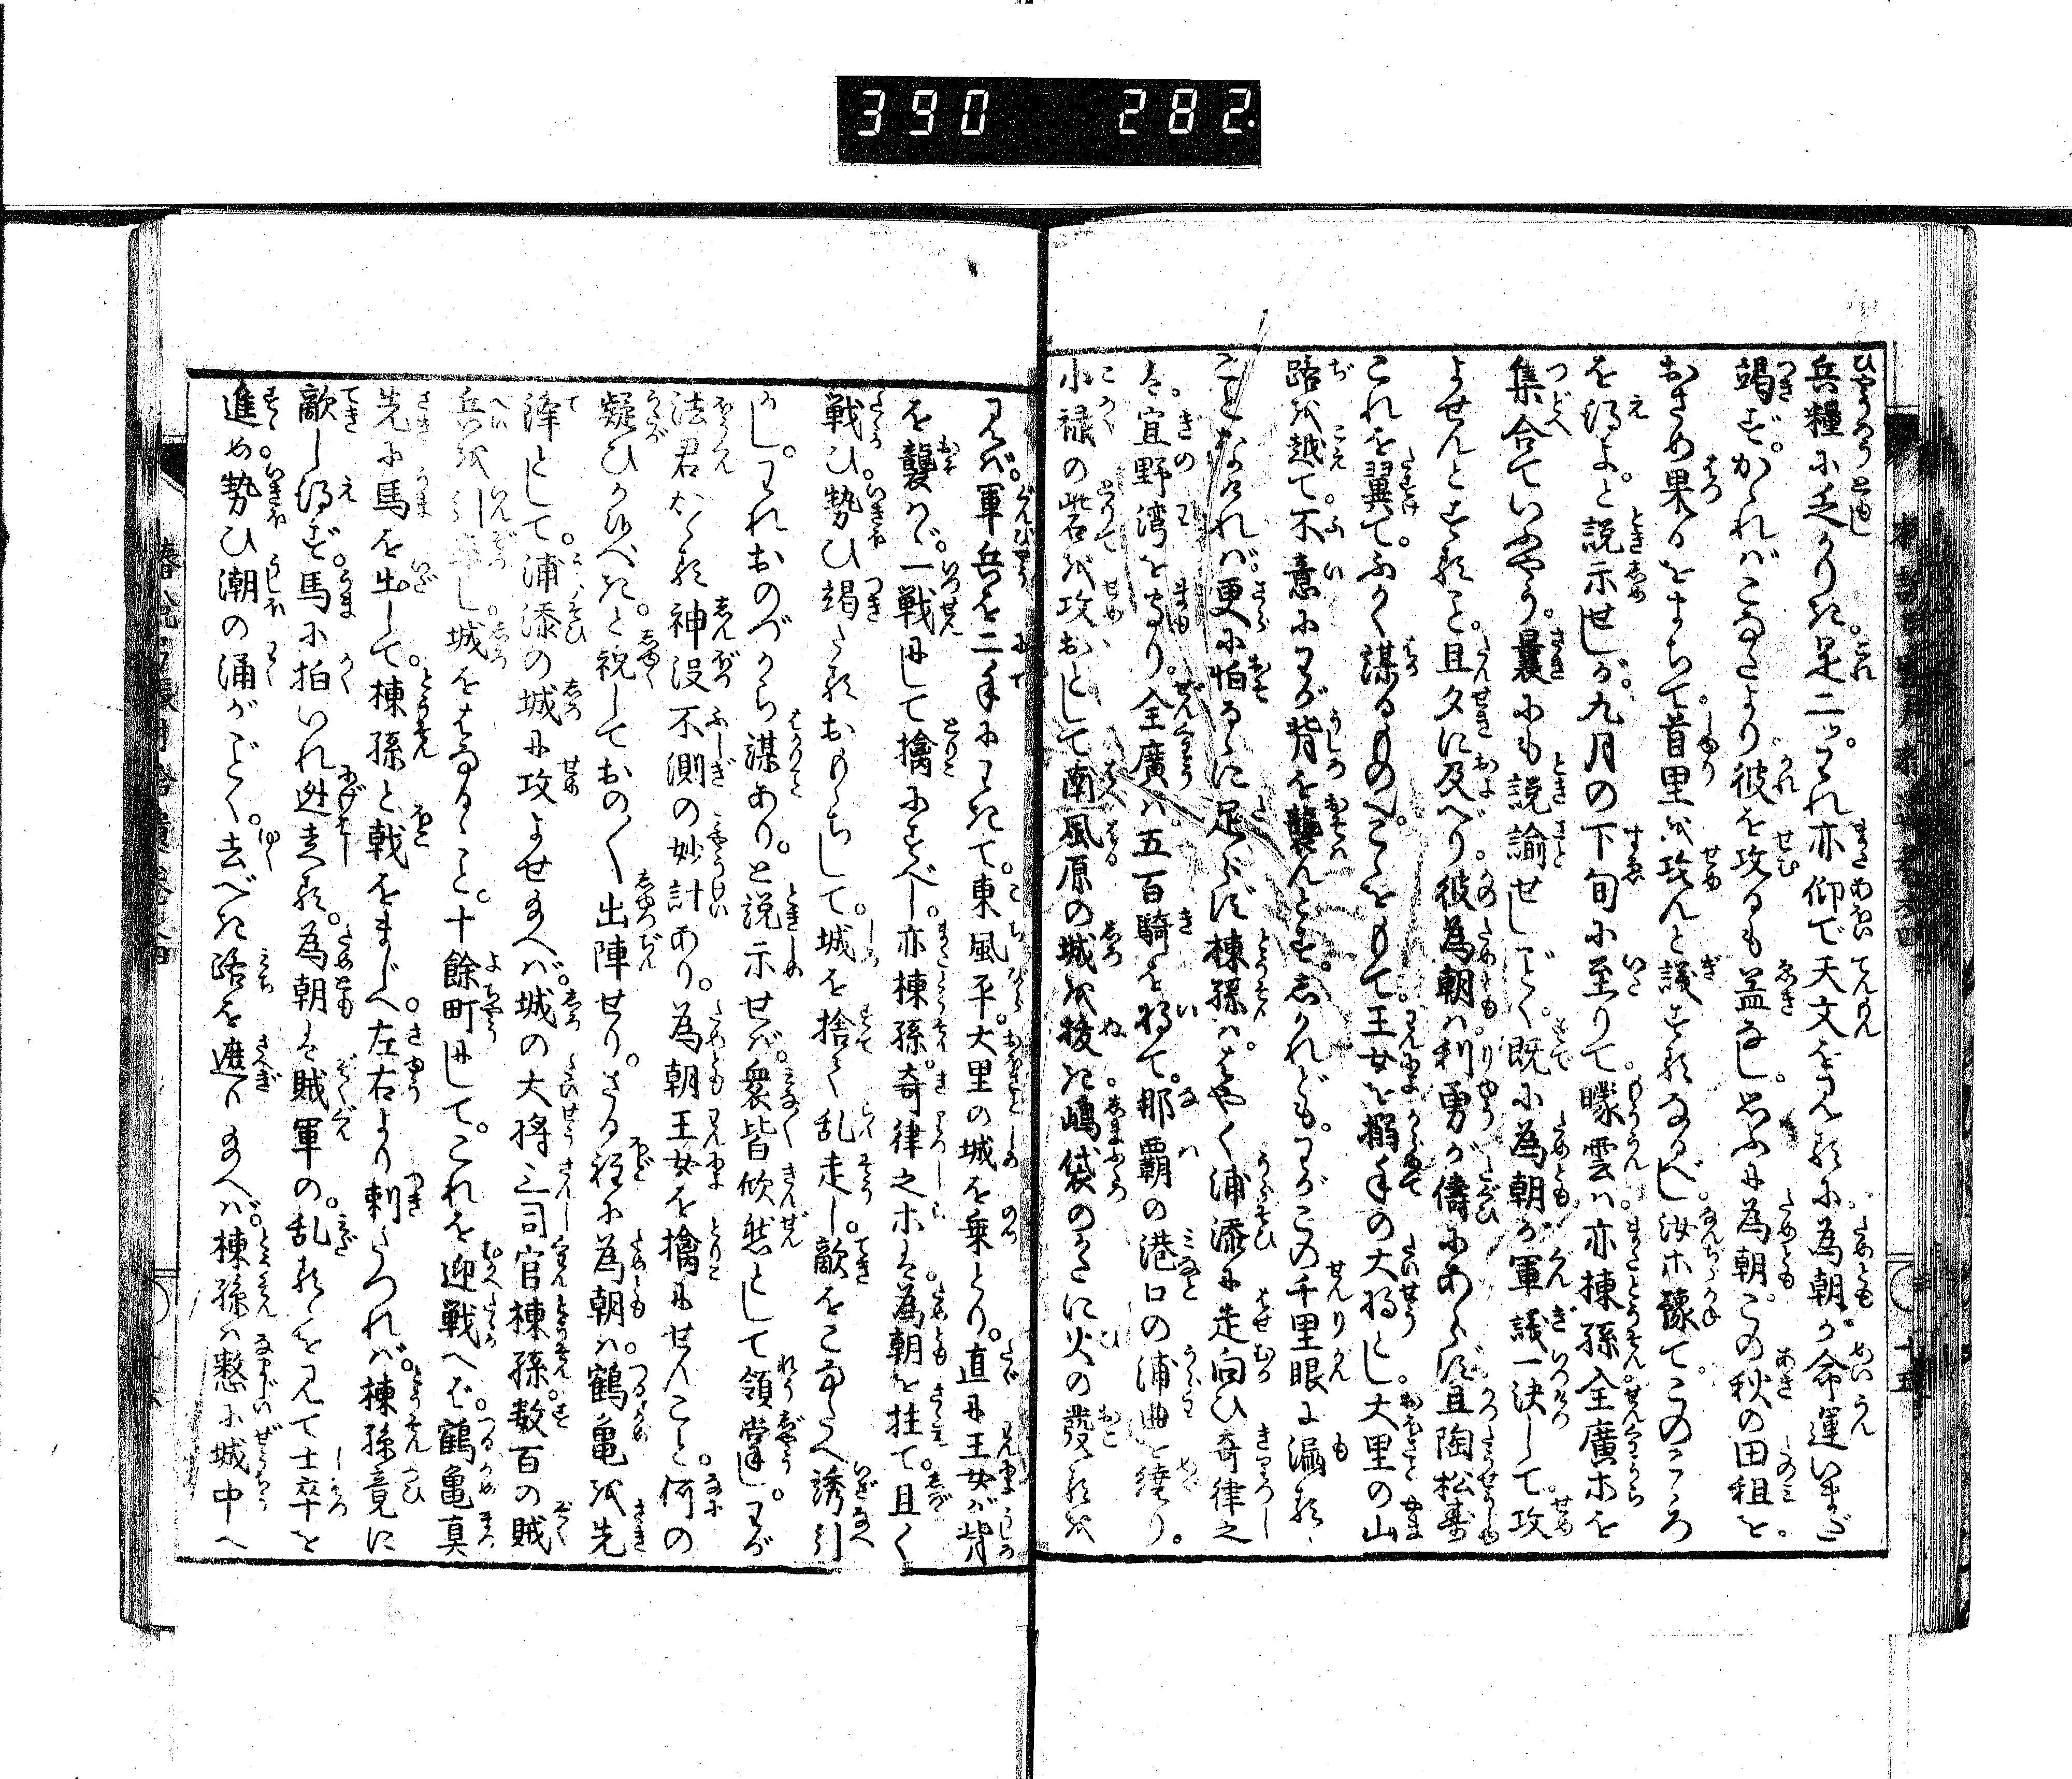 390 282.
兵糧に乏しかりき是二ッ。われ亦仰で天文を見るに為朝が命運いまだ
竭ず。かゝればこなたより彼を攻るも益なし。思ふに為朝。この秋の田租を
おさめ果るをまちて。首里を攻んと議するなるべし汝ホ豫て。このこゝろ
を得よ。と説示せしが。九月の下旬に至りて。曚雲ハ。亦棟孫全廣ホを
集合ていふやう。曩にも説諭せしごとく。既に為朝が軍議一決して。攻
よせんとすること。且夕に及べり。彼為朝ハ利勇が儔にあらず。且陶松壽
これを翼て。ふかく謀るものへ。こゝをもて。王女を搦手の大将とし。大里の山
路を越て。不意にわが背を襲んとす。しかれども。わがこの千里眼に漏るゝ
ことなければ。更に怕るゝに足らず。棟孫ハ。はやく浦添に走向ひ。奇律之
ハ。宜野湾を守り。全廣ハ。五百騎を将て。那覇の港口の浦曲を繞り。
小禄の砦を攻おとして。南風原の城を抜き。嶋袋のかたに火の發るを
見バ。軍兵を二手にわけて。東風平。大里の城を乗とり。直に王女が背
を襲はゞ。一戦にして擒にすべし。亦棟孫。奇律之ホハ。為朝を拄て。且く
戦ひ。勢ひ竭たるおもゝちして。城を捨て乱走し。敵をこなたへ誘引
かし。われおのづから謀あり。と説示せば。衆皆欣然として領掌し。わが
法君かゝる神没不測の妙計あり。為朝王女を擒にせんこと。何の
疑ひかあるべき。と祝しておの〳〵出陣せり。さる程に為朝ハ。鶴亀を先
鋒として。浦添の城に攻よせ給へば。城の大将三司官棟孫。数百の賊
兵を引率し。城をはなるゝこと。十餘町にして。これを迎戦へば。鶴亀真
先に馬を出して。棟孫と戟をまじへ。左右より刺たつれば。棟孫竟に
敵し得ず。馬に拍いれ迯走る。為朝ハ賊軍の。乱るゝを見て士卒を
進め。勢ひ潮の涌がごとく。去べき路を遮り給へバ。棟孫ハ憖に城中へ